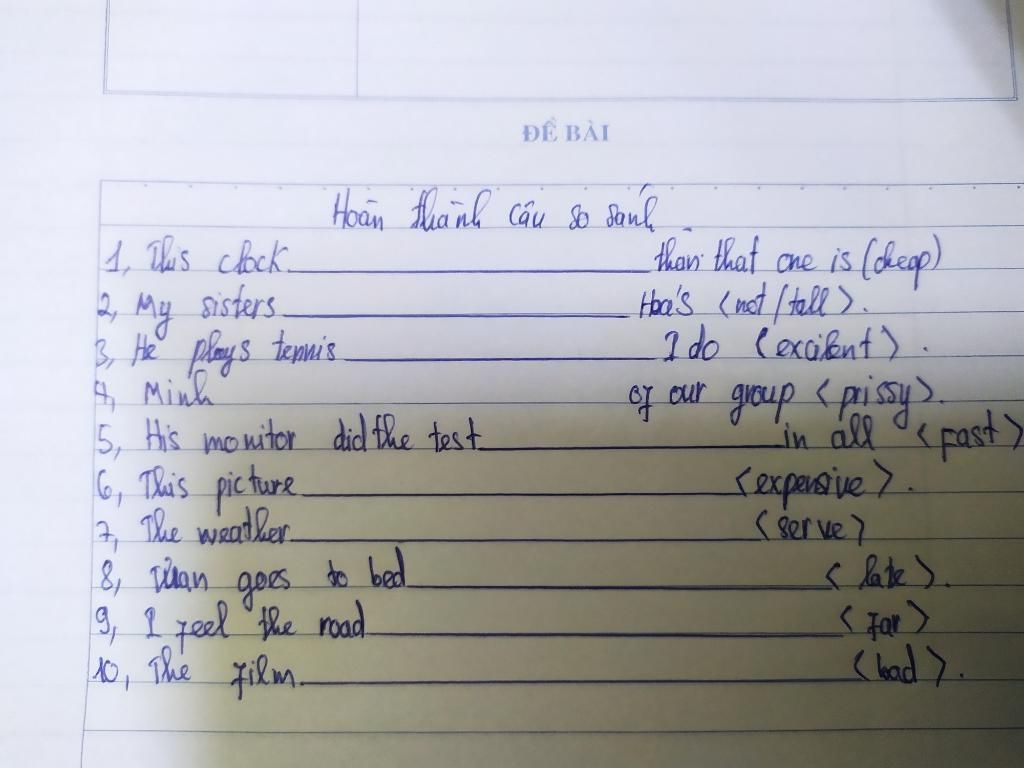 ĐỀ BÀI
Hoàn thành câu so sánh
1, This clock ______ than that one is (cheap)
2, My sisters ______ Hoa's <not/tall>.
3, He plays tennis ______ I do <excillent>.
4, Minh of our group <prissy>.
5, His monitor did the test ______ in all <fast>
6, This picture ______ <expensive>.
7, The weather ______ <serve>
8, goes to bed ______ <late>.
9, I feel the road ______ <far>
10, The film ______ <bad>.